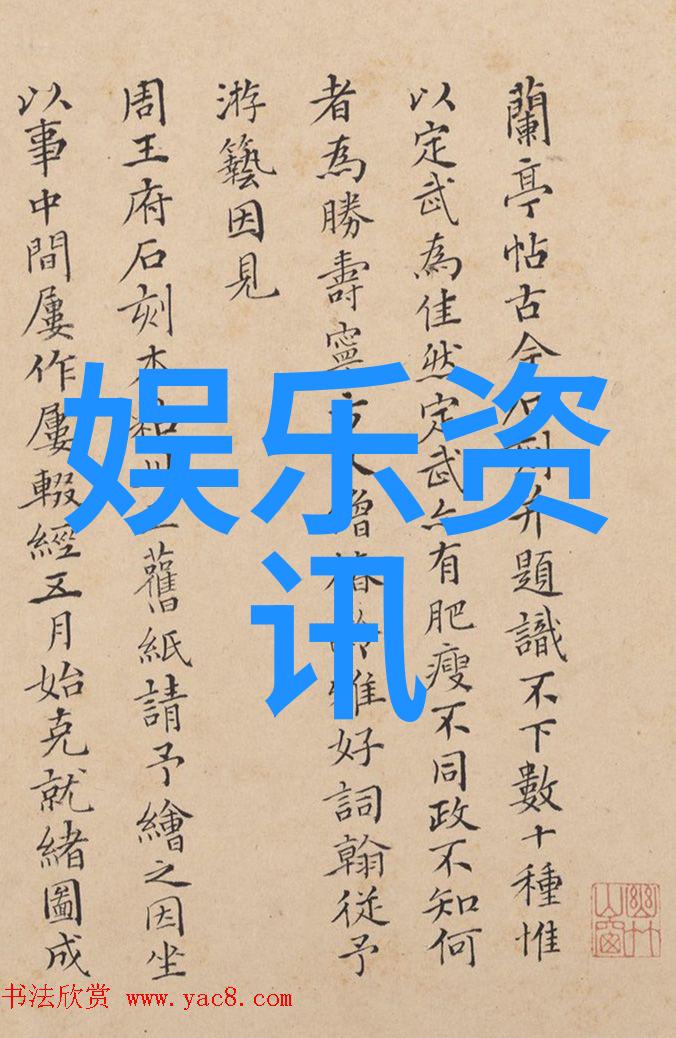 蘭亭帖古今石刻并題識不下數十種惟
以定武為佳然定武亦有肥瘦不同政不知何
者為勝壽寧僧雅好詞翰從予
游藝因見
周王府石刻本舊紙請予繪之因坐
以事中間屢作屢輟經五月始克就緒圖成
娱乐资
讯
幽竹山窗
书法欣赏 www.yac8.com